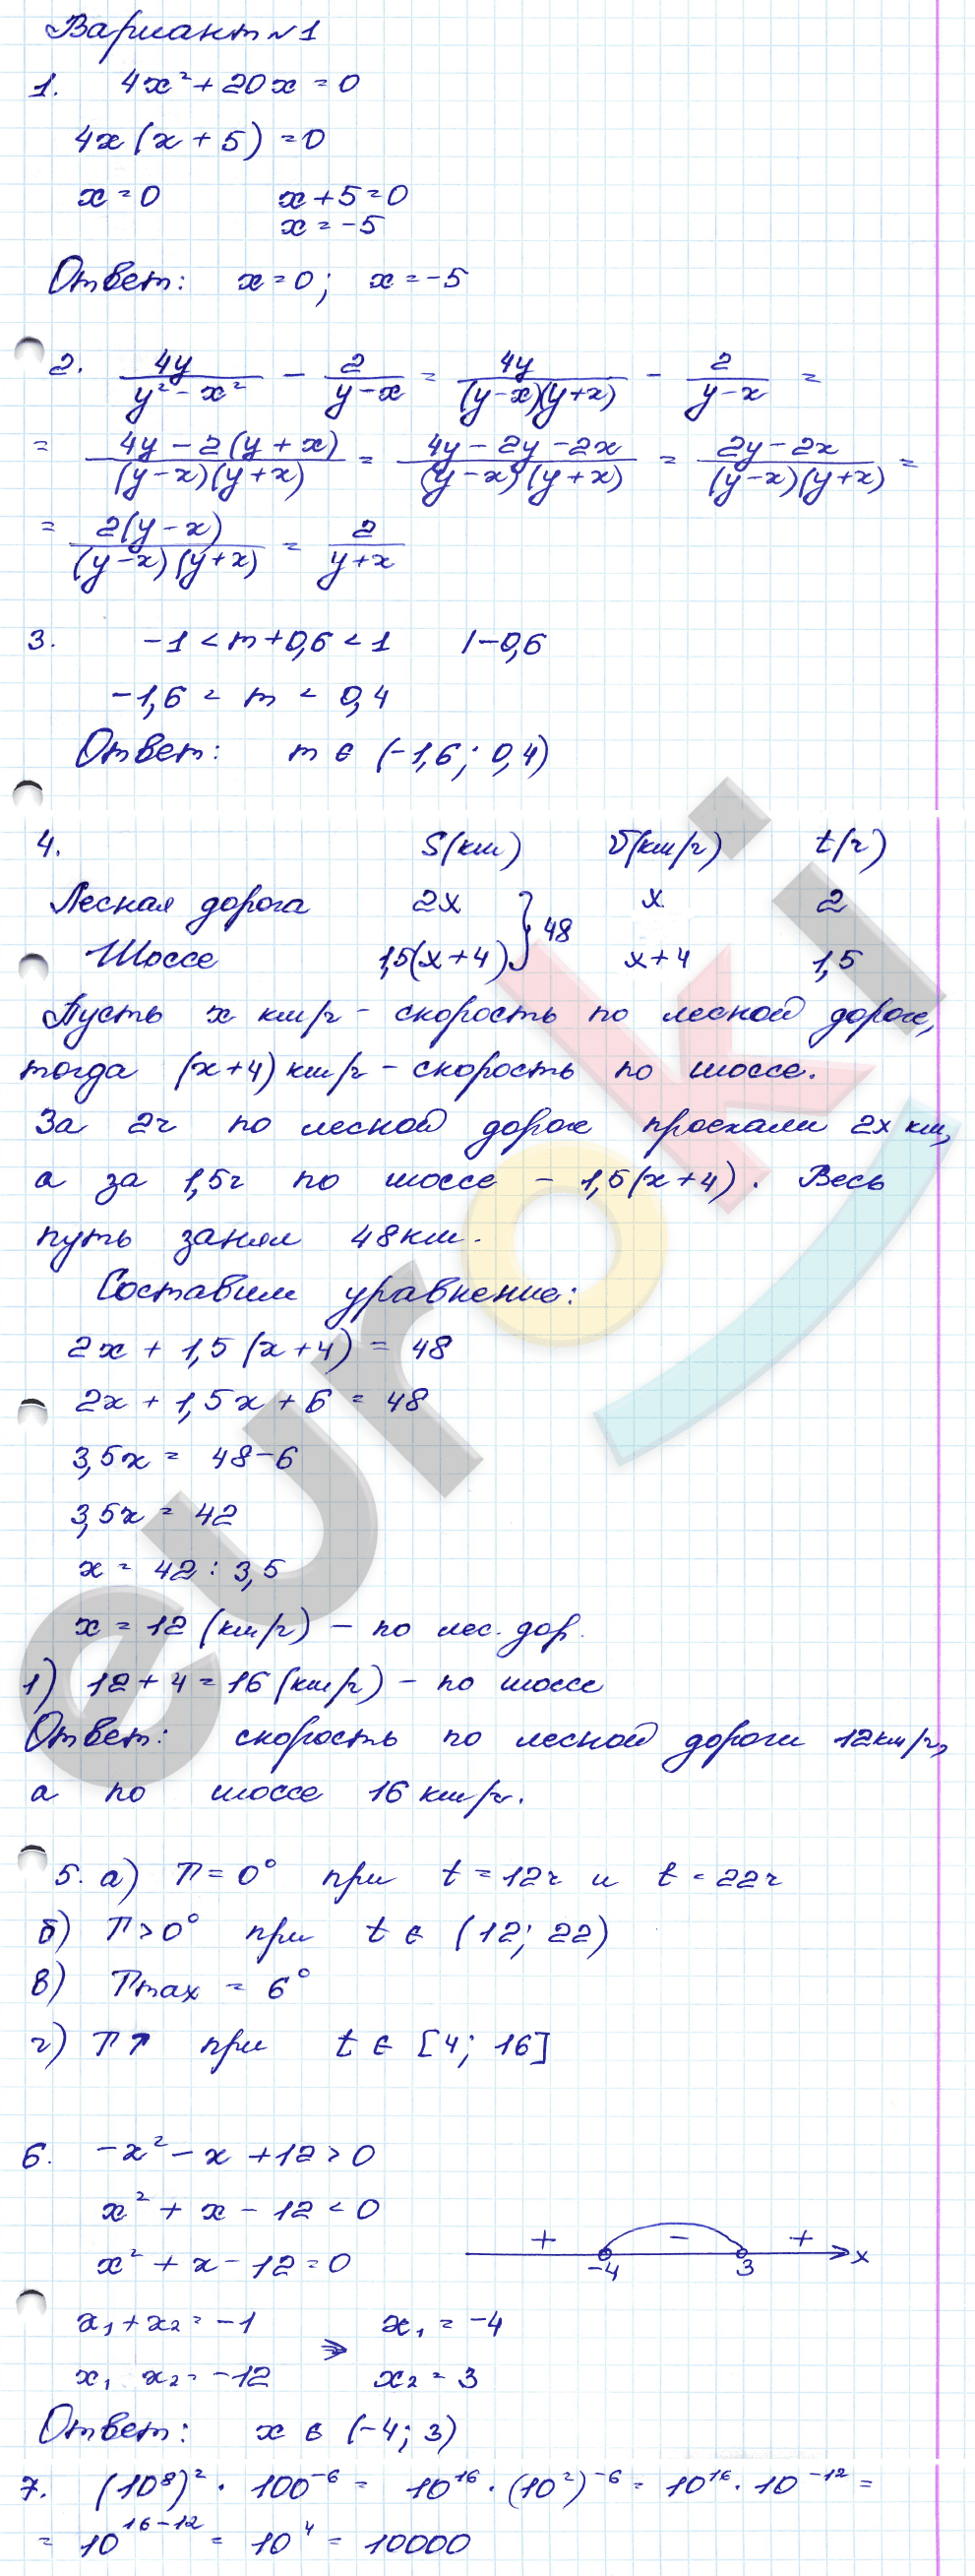 Вариант №1
1. 4x² + 20x = 0
4x(x + 5) = 0
x = 0 x + 5 = 0
x = -5
Ответ: x = 0; x = -5
2. 4y/(y² - x²) - 2/(y - x) = 4y/((y - x)(y + x)) - 2/(y - x) =
= (4y - 2(y + x))/((y - x)(y + x)) = (4y - 2y - 2x)/((y - x)(y + x)) = (2y - 2x)/((y - x)(y + x)) =
= 2(y - x)/((y - x)(y + x)) = 2/(y + x)
3. -1 < m + 0,6 < 1 | -0,6
-1,6 < m < 0,4
Ответ: m ∈ (-1,6; 0,4)
4. S(км) V(км/ч) t(ч)
Лесная дорога 2x x 2
} 48
Шоссе 1,5(x + 4) x + 4 1,5
Пусть x км/ч - скорость по лесной дороге,
тогда (x + 4) км/ч - скорость по шоссе.
За 2ч по лесной дороге проехали 2x км,
а за 1,5ч по шоссе - 1,5(x + 4). Весь
путь занял 48км.
Составим уравнение:
2x + 1,5(x + 4) = 48
2x + 1,5x + 6 = 48
3,5x = 48 - 6
3,5x = 42
x = 42 : 3,5
x = 12 (км/ч) - по лес. дор.
1) 12 + 4 = 16 (км/ч) - по шоссе
Ответ: скорость по лесной дороги 12км/ч,
а по шоссе 16 км/ч.
5. а) T = 0° при t = 12ч и t = 22ч
б) T > 0° при t ∈ (12; 22)
в) Tmax = 6°
г) T↑ при t ∈ [4; 16]
6. -x² - x + 12 > 0
x² + x - 12 < 0
x² + x - 12 = 0
+ - +
-4 3 x
x₁ + x₂ = -1 ⇒ x₁ = -4
x₁ x₂ = -12 x₂ = 3
Ответ: x ∈ (-4; 3)
7. (10⁸)² · 100⁻⁶ = 10¹⁶ · (10²)⁻⁶ = 10¹⁶ · 10⁻¹² =
= 10¹⁶⁻¹² = 10⁴ = 10000
euroki